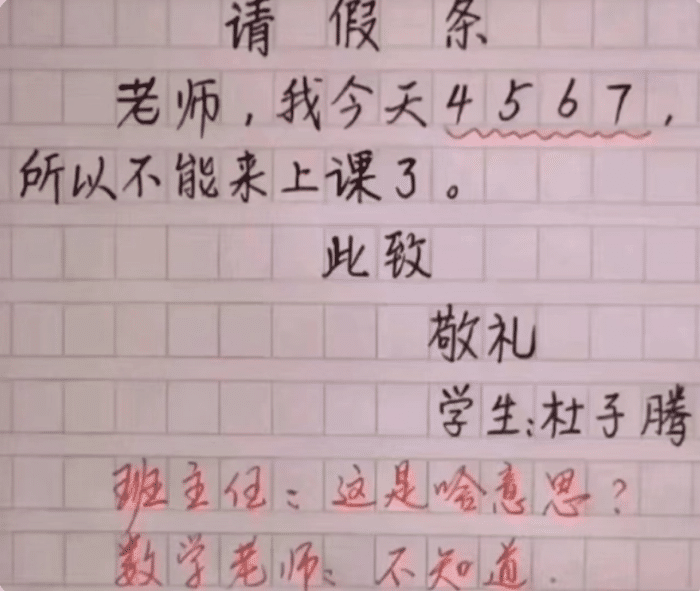 请假条
老师，我今天4567，
所以不能来上课了。
此致
敬礼
学生：杜子腾
班主任：这是啥意思？
数学老师：不知道.